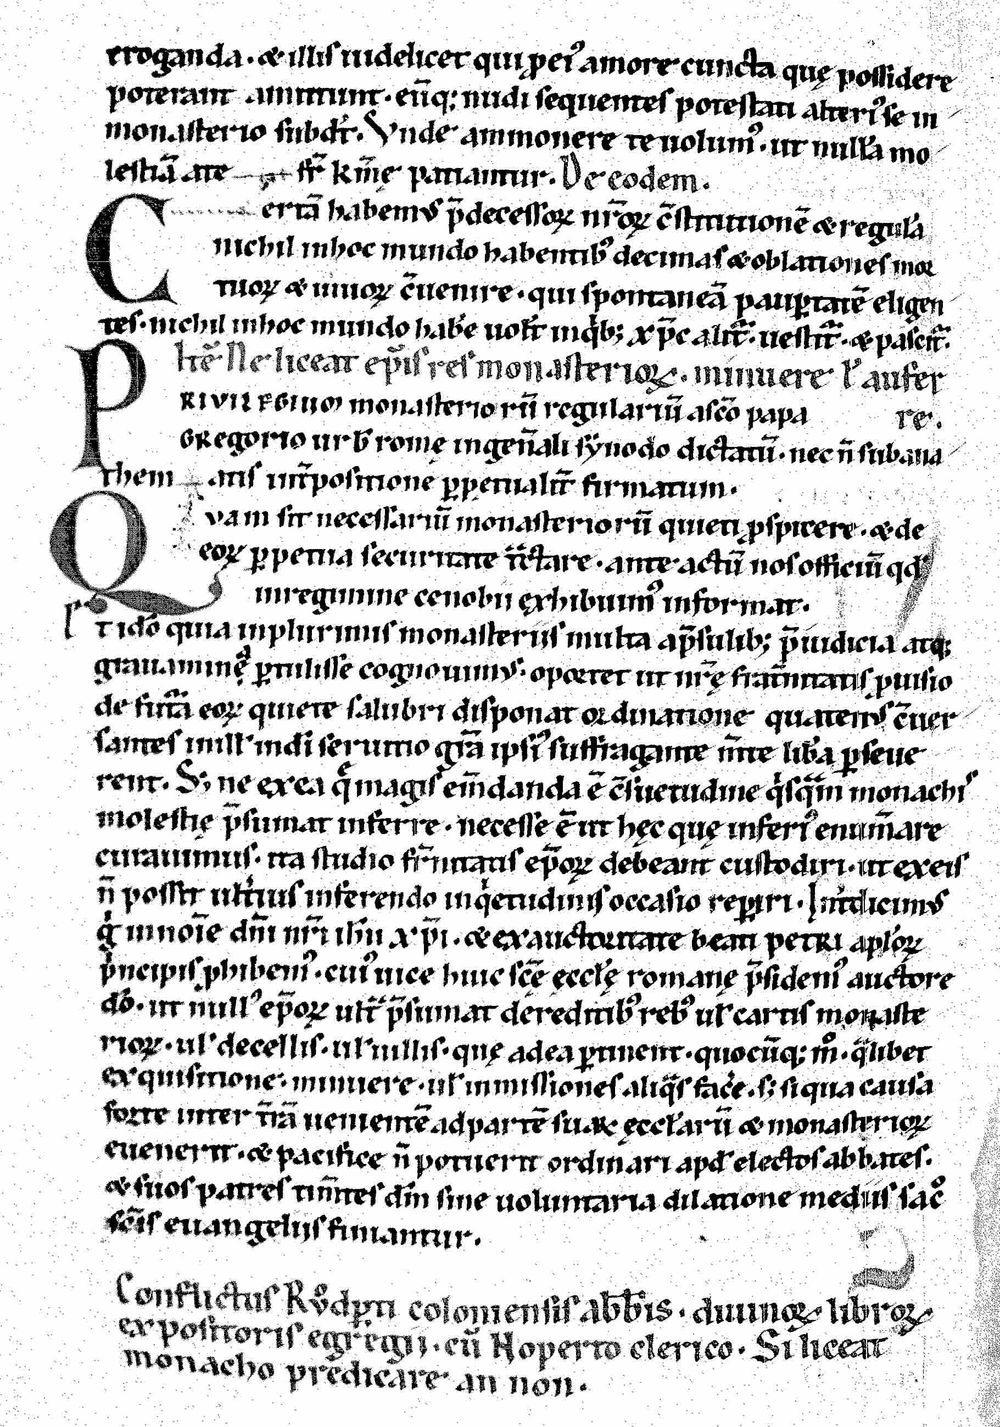 eroganda. & illis uidelicet qui ꝓ ei᾿ amore cuncta quę possidere
poterant amittunt. eūq; nudi sequentes potestati alteri᾿ se in
monasterio subdt̄. Vnde ammonere te uolum᾿. ut nullā mo
lestiā a te fr̄s karm̄e patiantur. De eodem.
Certā habem᾿ p̄decessoꝝ nr̄oꝝ c̄stitutionē & regulā
nichil in hoc mundo habentib᾿ decimas & oblationes mor
tuoꝝ & uiuoꝝ c̄uenire. qui spontaneā pauꝑtatē eligen
tes. nichil in hoc mundo habe᾿ uolt̄ in qͥb; xp̄c alit᾿. uestit᾿. & pascit᾿.
Ite᾿ Ne liceat ep̄is res monasterioꝝ. minuere ł aufer
PRIVILEGIUM monasterio rū regulariū a sc̄o papa re.
GREgorio urb᾿ romę in gen̄ali synodo dictatū. nec n̄ sub ana
them atis int̄positione ꝑpetualit᾿ firmatum.
Qvam sit necessariū monasterio rū quieti ꝓspicere. & de
eoꝝ ꝑpetua securitate tͣctare. ante actū nos officiū qd᾿
in regimine cenobii exhibuim᾿ informat.
Et ido᾿ quia in plurimis monasteriis multa ap̄sulib; p̄iudicia atq;
grauaminę ꝑtulisse cognouim᾿. oportet ut nr̄ę frat̄nitatis ꝓuisio
de futā eoꝝ quiete salubri disponat ordinatione quaten᾿ c̄uer
santes in ill᾿ in dī seruitio gr̄a ipsi᾿ suffragante m̄te lib̄a ꝑseue
rent. S; ne ex ea q̄ magis em̄danda ē c̄suetudine qͥsqͣm monachi᾿
molestię p̄sumat inferre. necesse ē ut hęc quę inferi᾿ enum̄are
curauimus. ita studio fr̄nitatis ep̄oꝝ debeant custodiri. ut ex eis
n̄ possit ult̄ius inferendo inqͥetudinis occasio repiri. Int̄dicim᾿
gͥ in noīe dn̄i nr̄i ihū xp̄i. & ex auctoritate beati petri aploꝝ
p̄ncipis ꝓhibem᾿. cui᾿ uice huic sc̄ę ęccl̄ę romanę p̄sidem᾿ auctore
dō. ut null᾿ ep̄oꝝ ult̄ p̄sumat de reditib᾿ reb᾿ ul᾿ cartis monaste
rioꝝ. ul᾿ de cellis. ul᾿ uillis. quę ad ea ꝑtinent. quocūq; m̊. qͣlibet
exquisitione. minuere. ul᾿ inmissiones aliqͣs face᾿. s; si qua causa
forte inter t̄rā uenientē ad partē suaꝝ ęccl̄arū & monasterioꝝ
euenerit. & pacifice n̄ potuerit ordinari apd᾿ electos abbates.
& suos patres tim̄tes dm̄ sine uoluntaria dilatione mediis sac᾿
sc̄is euangeliis finiantur.
Conflictus Rv̊dꝑti coloniensis abb̄is. diuinoꝝ libroꝝ
expositoris egregii. cū Noperto clerico. Si liceat
monacho predicare an non.